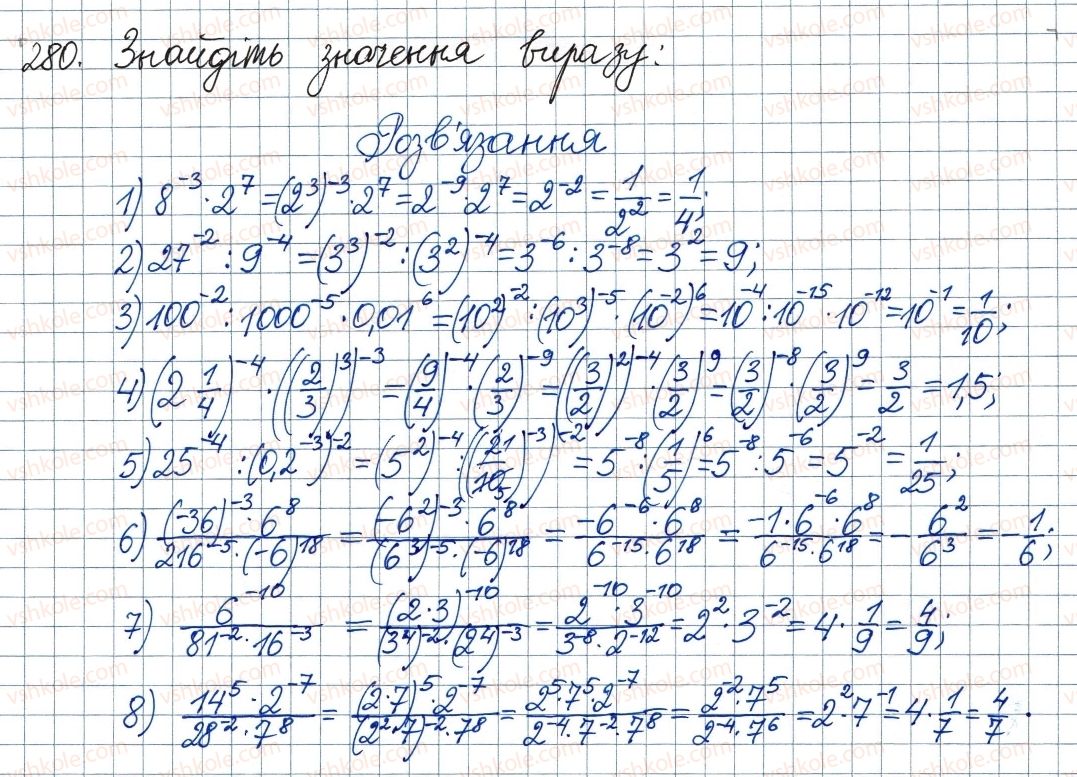 280. Знайдіть значення виразу:
Розв'язання
1) 8^{-3} · 2^7 = (2^3)^{-3} · 2^7 = 2^{-9} · 2^7 = 2^{-2} = 1/2^2 = 1/4;
2) 27^{-2} : 9^{-4} = (3^3)^{-2} : (3^2)^{-4} = 3^{-6} : 3^{-8} = 3^2 = 9;
3) 100^{-2} : 1000^{-5} · 0,01^6 = (10^2)^{-2} : (10^3)^{-5} · (10^{-2})^6 = 10^{-4} : 10^{-15} · 10^{-12} = 10^{-1} = 1/10;
4) (2 1/4)^{-4} · ((2/3)^3)^{-3} = (9/4)^{-4} · (2/3)^{-9} = ((3/2)^2)^{-4} · (3/2)^9 = (3/2)^{-8} · (3/2)^9 = 3/2 = 1,5;
5) 25^{-4} : (0,2^{-3})^{-2} = (5^2)^{-4} : ((2 1/10 5)^{-3})^{-2} = 5^{-8} : (1/5)^6 = 5^{-8} : 5^{-6} = 5^{-2} = 1/25;
6) (-36)^{-3} · 6^8 / 216^{-5} · (-6)^{18} = (-6^2)^{-3} · 6^8 / (6^3)^{-5} · (-6)^{18} = -6^{-6} · 6^8 / 6^{-15} · 6^{18} = -1 · 6^{-6} · 6^8 / 6^{-15} · 6^{18} = - 6^2/6^3 = - 1/6;
7) 6^{-10} / 81^{-2} · 16^{-3} = (2 · 3)^{-10} / (3^4)^{-2} · (2^4)^{-3} = 2^{-10} · 3^{-10} / 3^{-8} · 2^{-12} = 2^2 · 3^{-2} = 4 · 1/9 = 4/9;
8) 14^5 · 2^{-7} / 28^{-2} · 7^8 = (2 · 7)^5 · 2^{-7} / (2^2 · 7)^{-2} · 7^8 = 2^5 · 7^5 · 2^{-7} / 2^{-4} · 7^{-2} · 7^8 = 2^{-2} · 7^5 / 2^{-4} · 7^6 = 2^2 · 7^{-1} = 4 · 1/7 = 4/7.